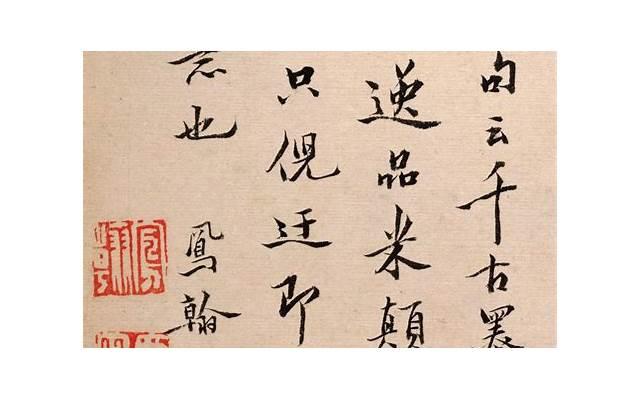 句云千古墨
逸品米顛
只倪迂即
也 鳳翰